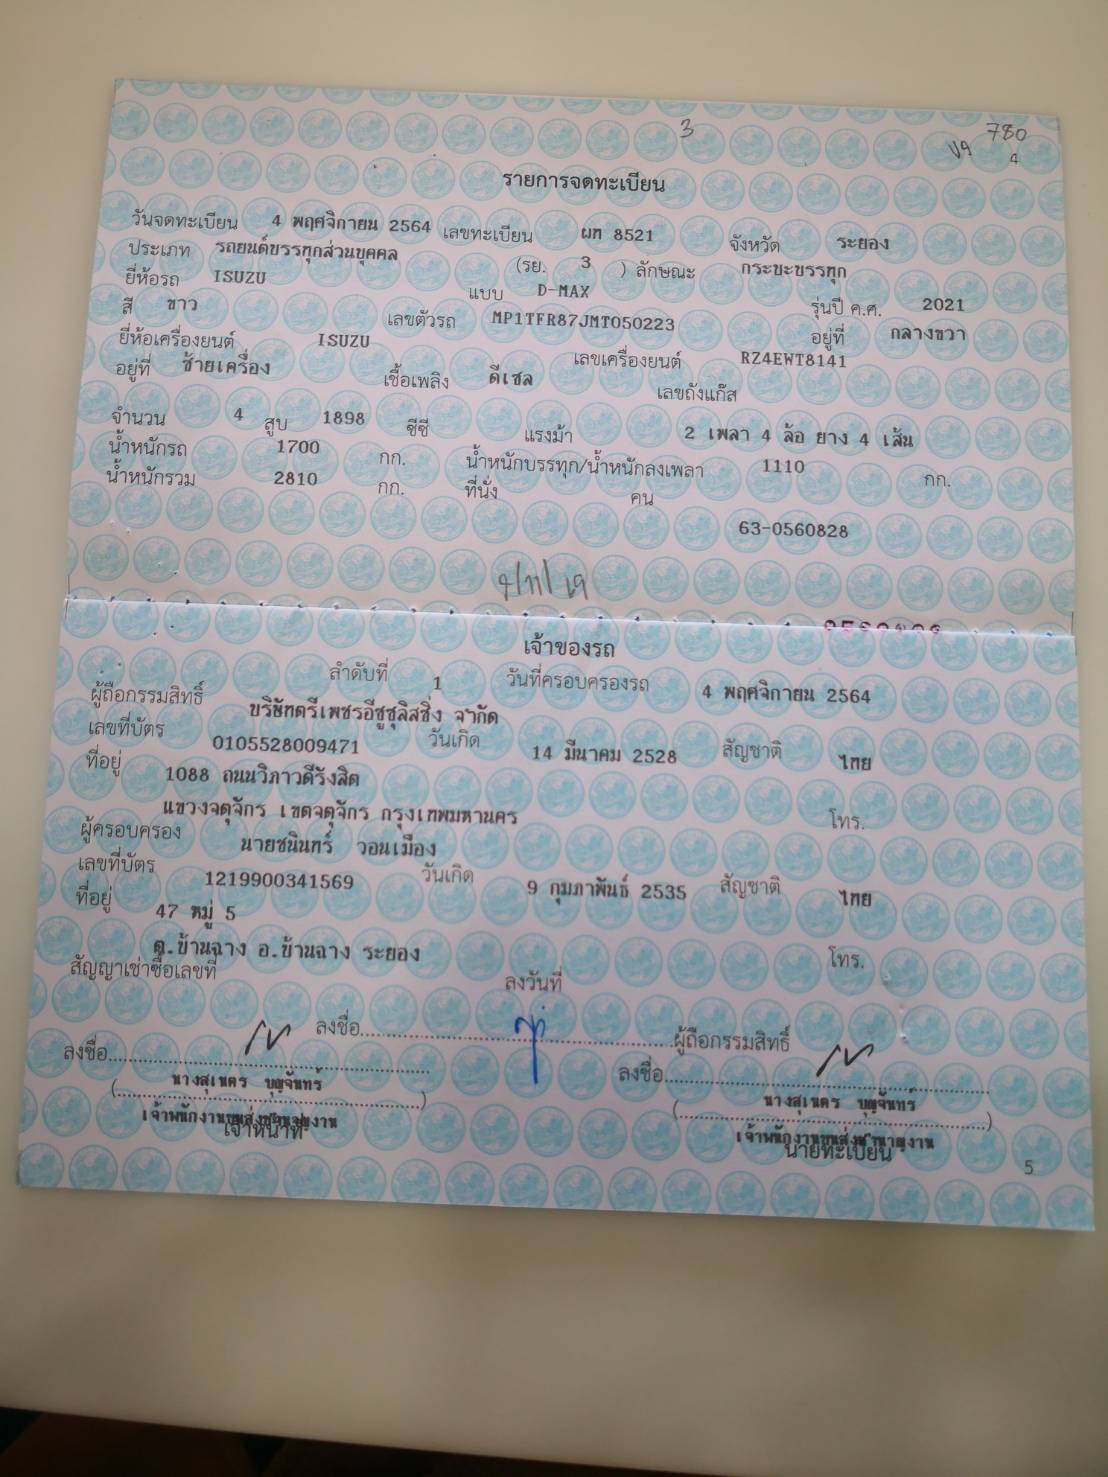 3
780
4
รายการจดทะเบียน
วันจดทะเบียน 4 พฤศจิกายน 2564 เลขทะเบียน ผท 8521 จังหวัด ระยอง
ประเภท รถยนต์บรรทุกส่วนบุคคล (รย. 3 ) ลักษณะ กระบะบรรทุก
ยี่ห้อรถ ISUZU แบบ D-MAX รุ่นปี ค.ศ. 2021
สี ขาว เลขตัวรถ MP1TFR87JMT050223 อยู่ที่ กลางขวา
ยี่ห้อเครื่องยนต์ ISUZU เลขเครื่องยนต์ RZ4EWT8141
อยู่ที่ ซ้ายเครื่อง เชื้อเพลิง ดีเซล เลขถังแก๊ส
จำนวน 4 สูบ 1898 ซีซี แรงม้า 2 เพลา 4 ล้อ ยาง 4 เส้น
น้ำหนักรถ 1700 กก. น้ำหนักบรรทุก/น้ำหนักลงเพลา 1110 กก.
น้ำหนักรวม 2810 กก. ที่นั่ง คน
63-0560828
เจ้าของรถ
ลำดับที่ 1 วันที่ครอบครองรถ 4 พฤศจิกายน 2564
ผู้ถือกรรมสิทธิ์ บริษัทตรีเพชรอีซูซุลิสซิ่ง จำกัด
เลขที่บัตร 0105528009471 วันเกิด 14 มีนาคม 2528 สัญชาติ ไทย
ที่อยู่ 1088 ถนนวิภาวดีรังสิต
แขวงจตุจักร เขตจตุจักร กรุงเทพมหานคร โทร.
ผู้ครอบครอง นายชนินทร์ วอนเมือง
เลขที่บัตร 1219900341569 วันเกิด 9 กุมภาพันธ์ 2535 สัญชาติ ไทย
ที่อยู่ 47 หมู่ 5
ต.บ้านฉาง อ.บ้านฉาง ระยอง โทร.
สัญญาเช่าซื้อเลขที่ ลงวันที่
ลงชื่อ ผู้ถือกรรมสิทธิ์
ลงชื่อ ลงชื่อ
(นางสุเนตร บุญจันทร์) (นางสุเนตร บุญจันทร์)
เจ้าพนักงานขนส่งชำนาญงาน เจ้าพนักงานขนส่งชำนาญงาน
เจ้าหน้าที่ นายทะเบียน
5